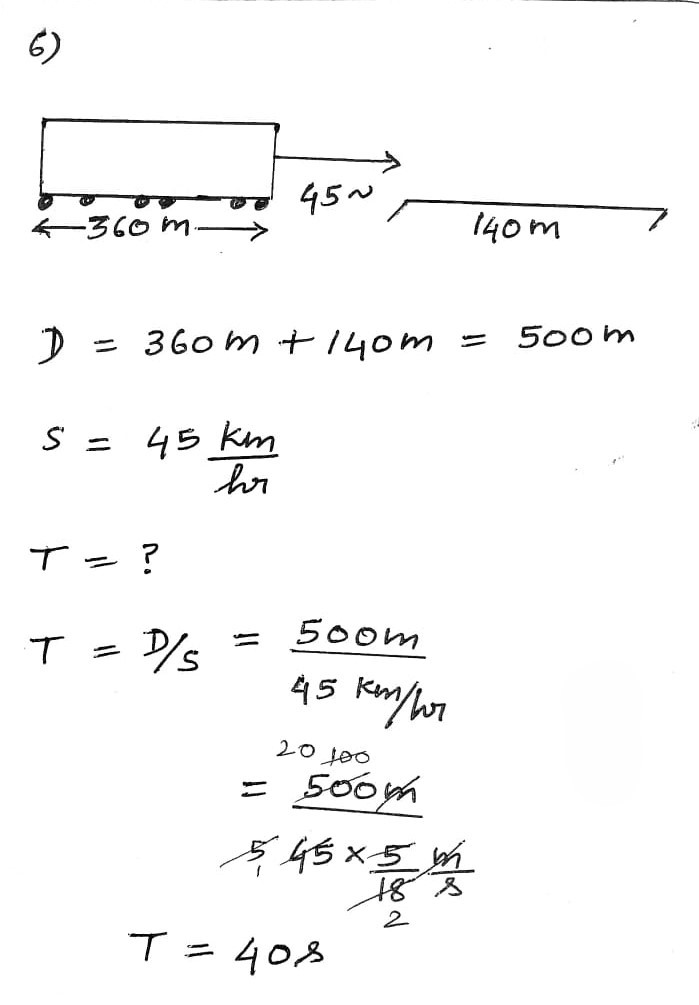 6)
45~
360 m
140 m
D = 360 m + 140 m = 500 m
S = 45 km/hr
T = ?
T = D/S = 500m / 45 km/hr
20 100
= 500m
5 1 45 × 5/18 m/s
2
T = 40s